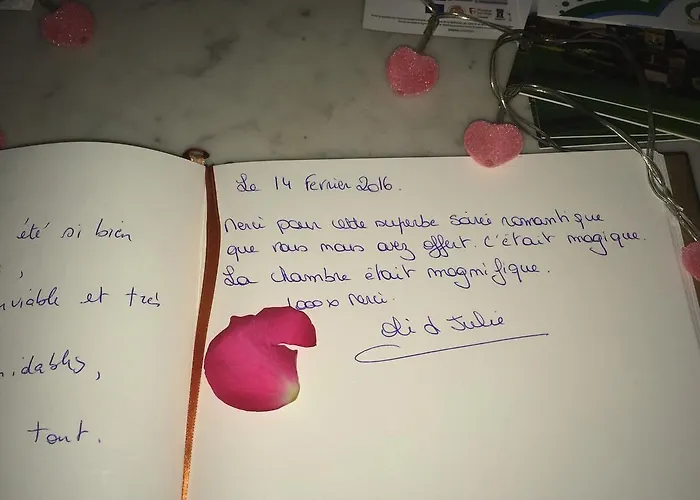 été si bien
,
nviable et très
idables,
tout.
Le 14 Fevrier 2016.
Merci pour cette superbe soirée romantique
que vous nous avez offert. C'était magique.
La chambre était magnifique.
1000 x Merci.
Oli & Julie